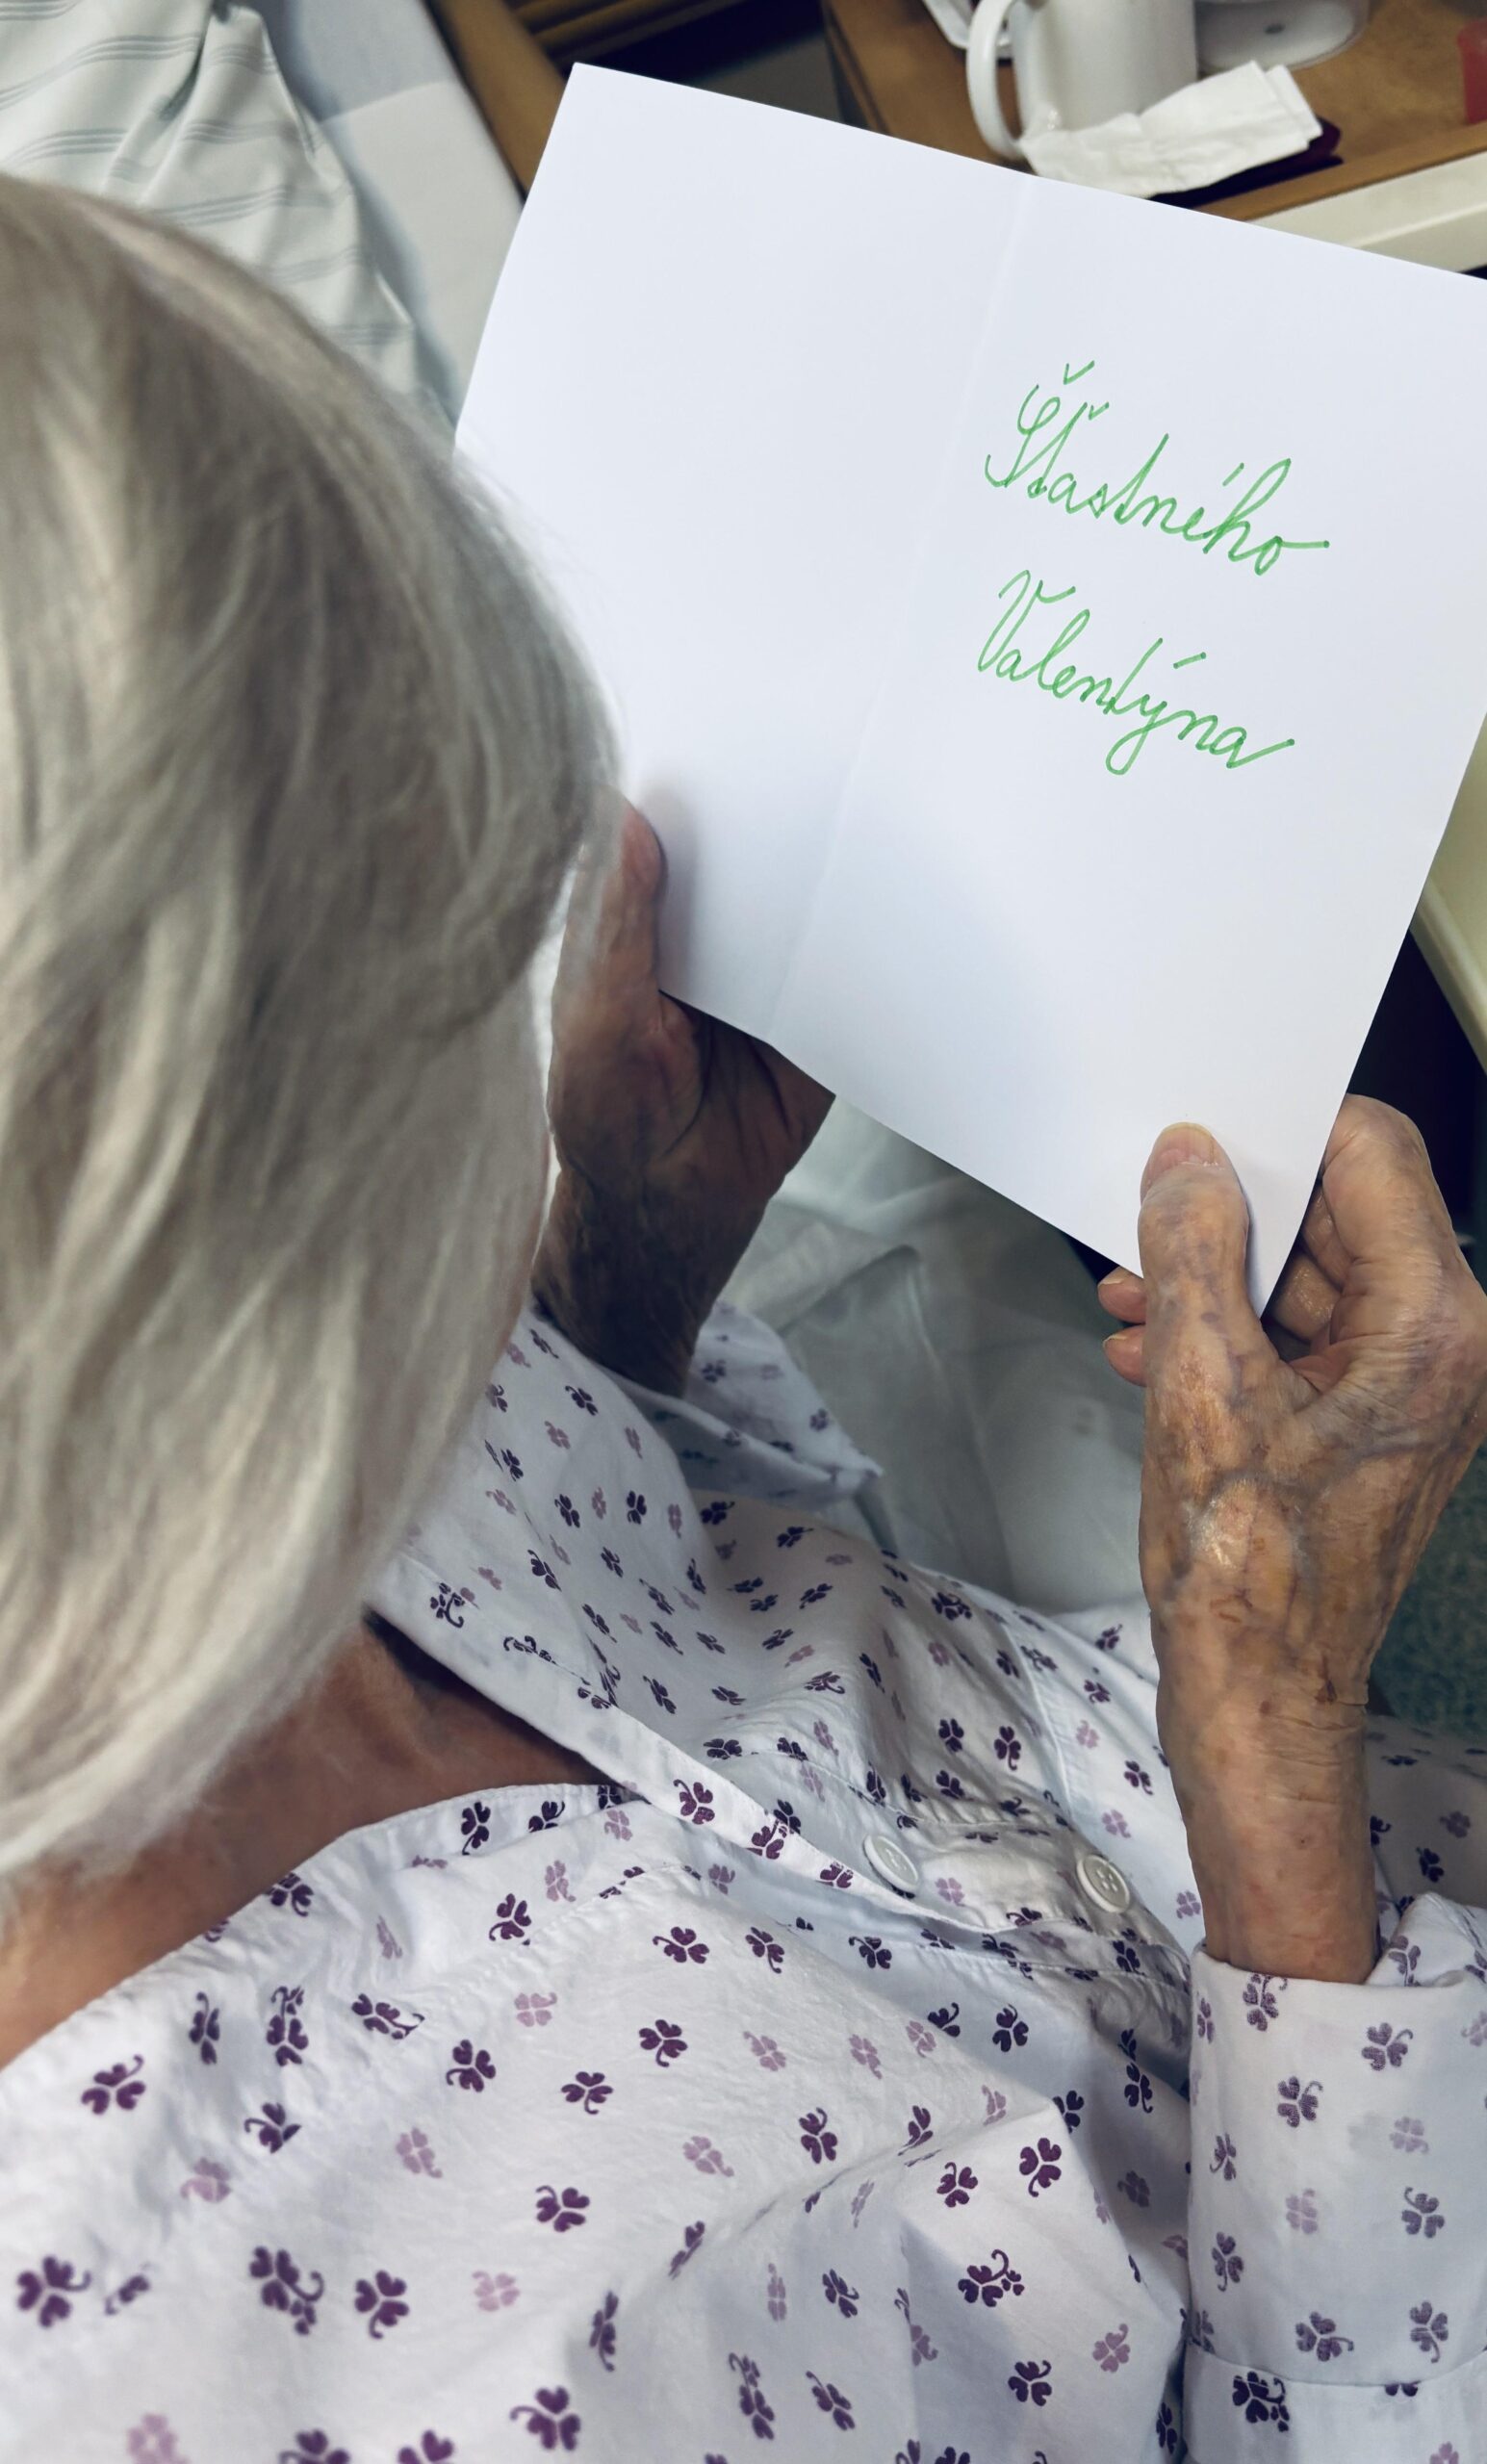 Šťastného
Valentýna